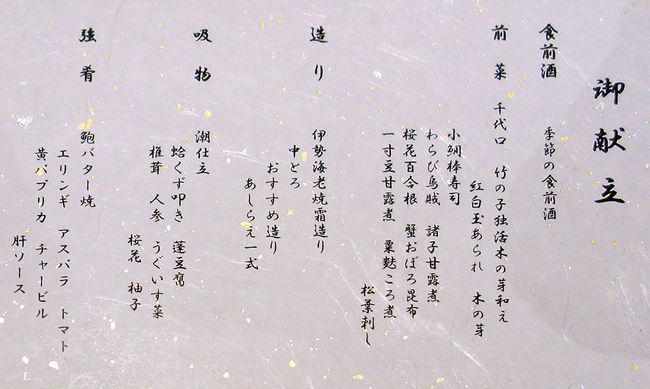 御献立
食前酒　季節の食前酒
前菜　千代口　竹の子独活木の芽和え
紅白玉あられ　木の芽
小鯛棒寿司
わらび烏賊　諸子甘露煮
桜花百合根　蟹おぼろ昆布
一寸豆甘露煮　粟麩ころ煮
松葉刺し
造り　伊勢海老焼霜造り
中とろ
おすすめ造り
あしらえ一式
吸物　潮仕立
蛤くず叩き　蓬豆腐
椎茸　人参　うぐいす菜
桜花　柚子
強肴　鮑バター焼
エリンギ　アスパラ　トマト
黄パプリカ　チャービル
肝ソース